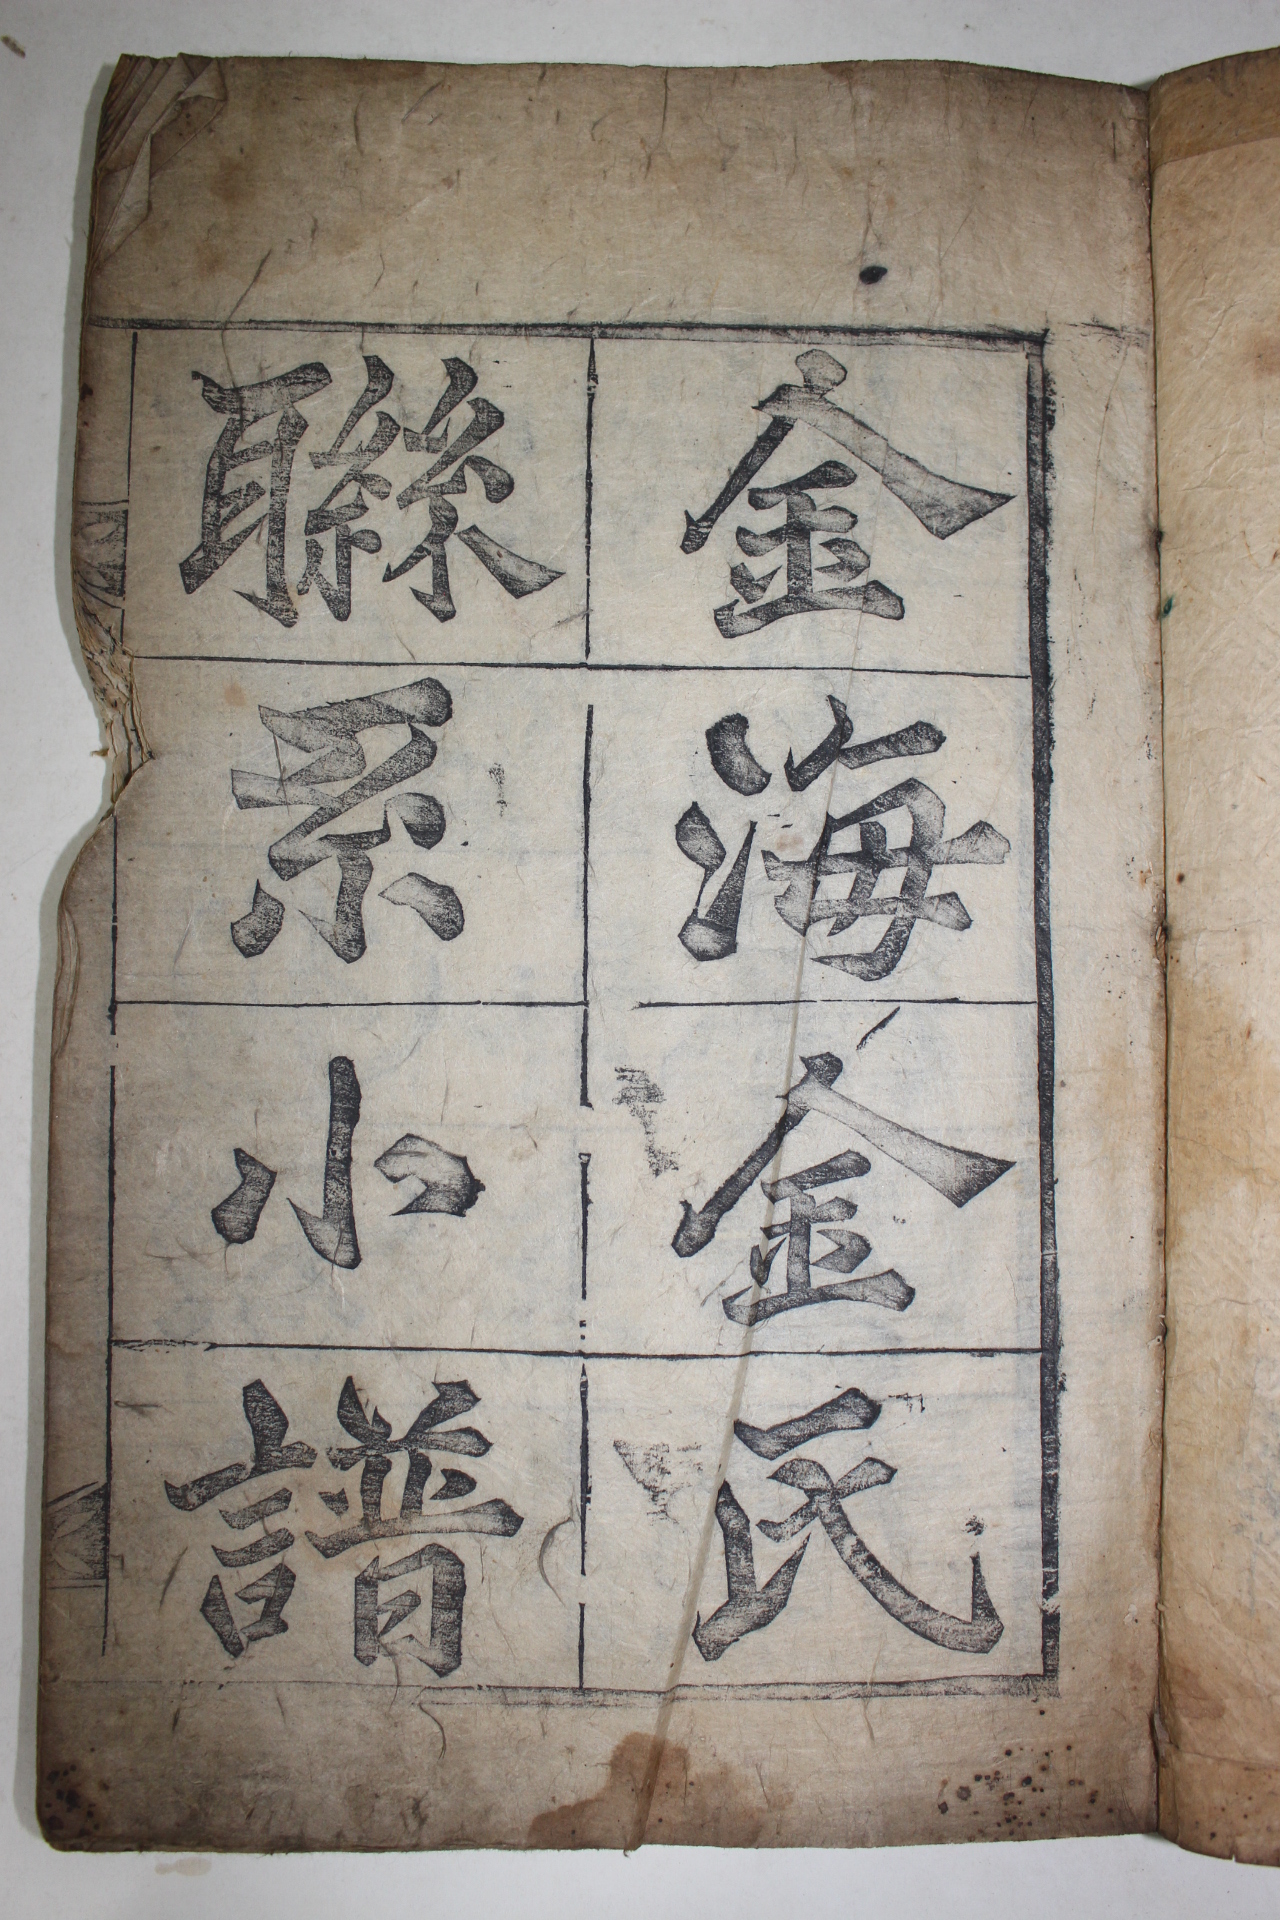 金海金氏
聯系小譜